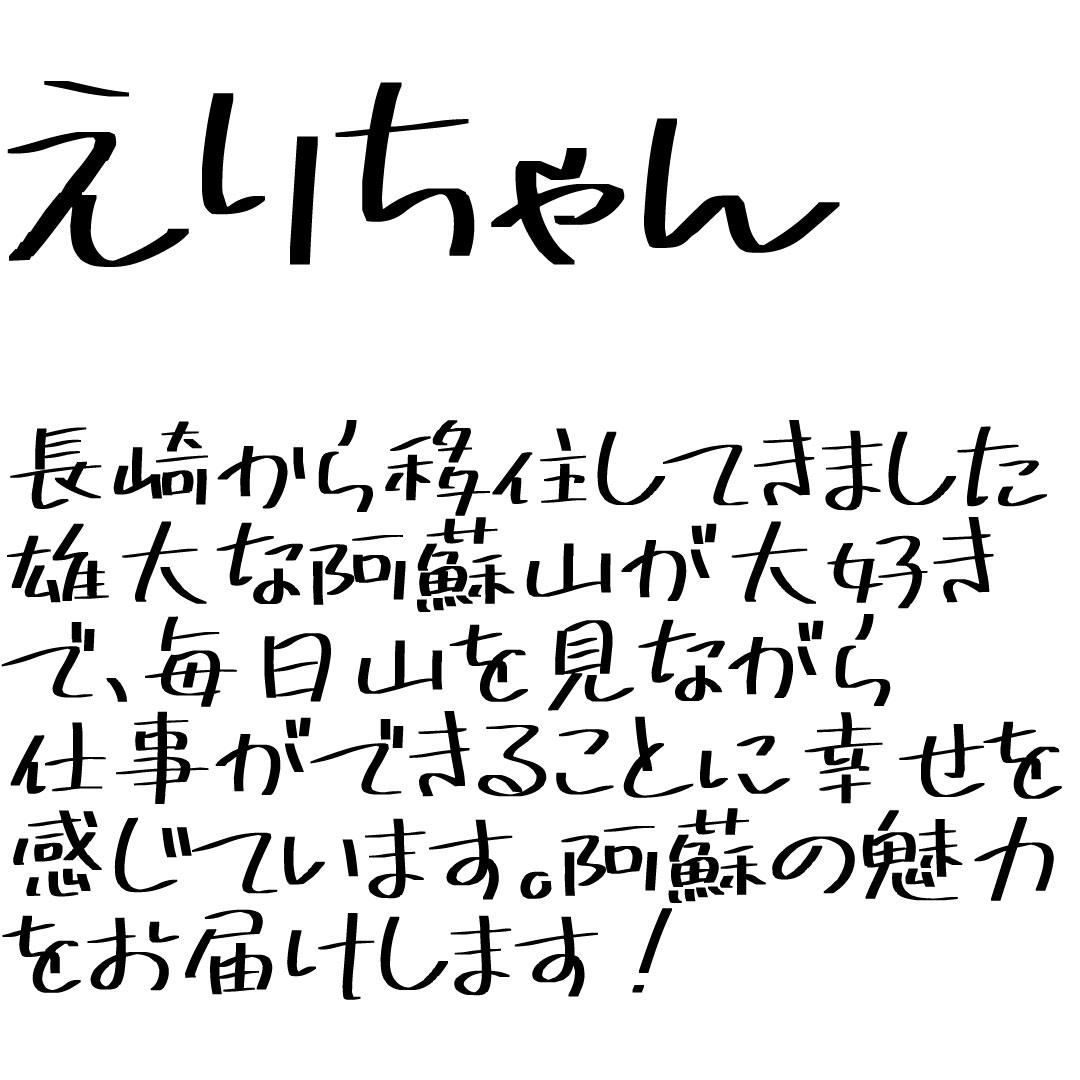 えりちゃん
長崎から移住してきました
雄大な阿蘇山が大好き
で、毎日山を見ながら
仕事ができることに幸せを
感じています。阿蘇の魅力
をお届けします！